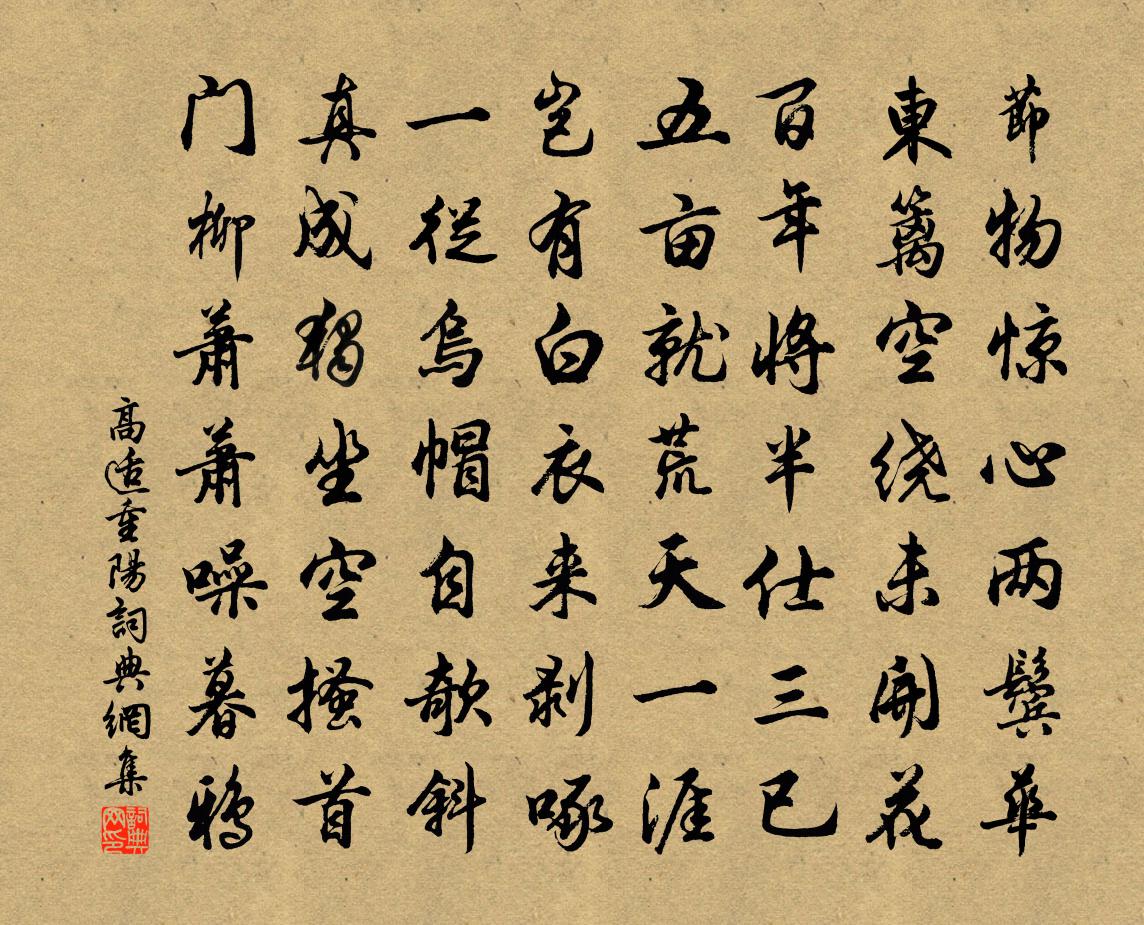 節物惊心两鬓華
東籬空绕未開花
百年将半仕三已
五亩就荒天一涯
岂有白衣来剥啄
一從烏帽自欹斜
真成独坐空搔首
门柳萧萧噪暮鸦
高适重陽詞典網集
詞典网印